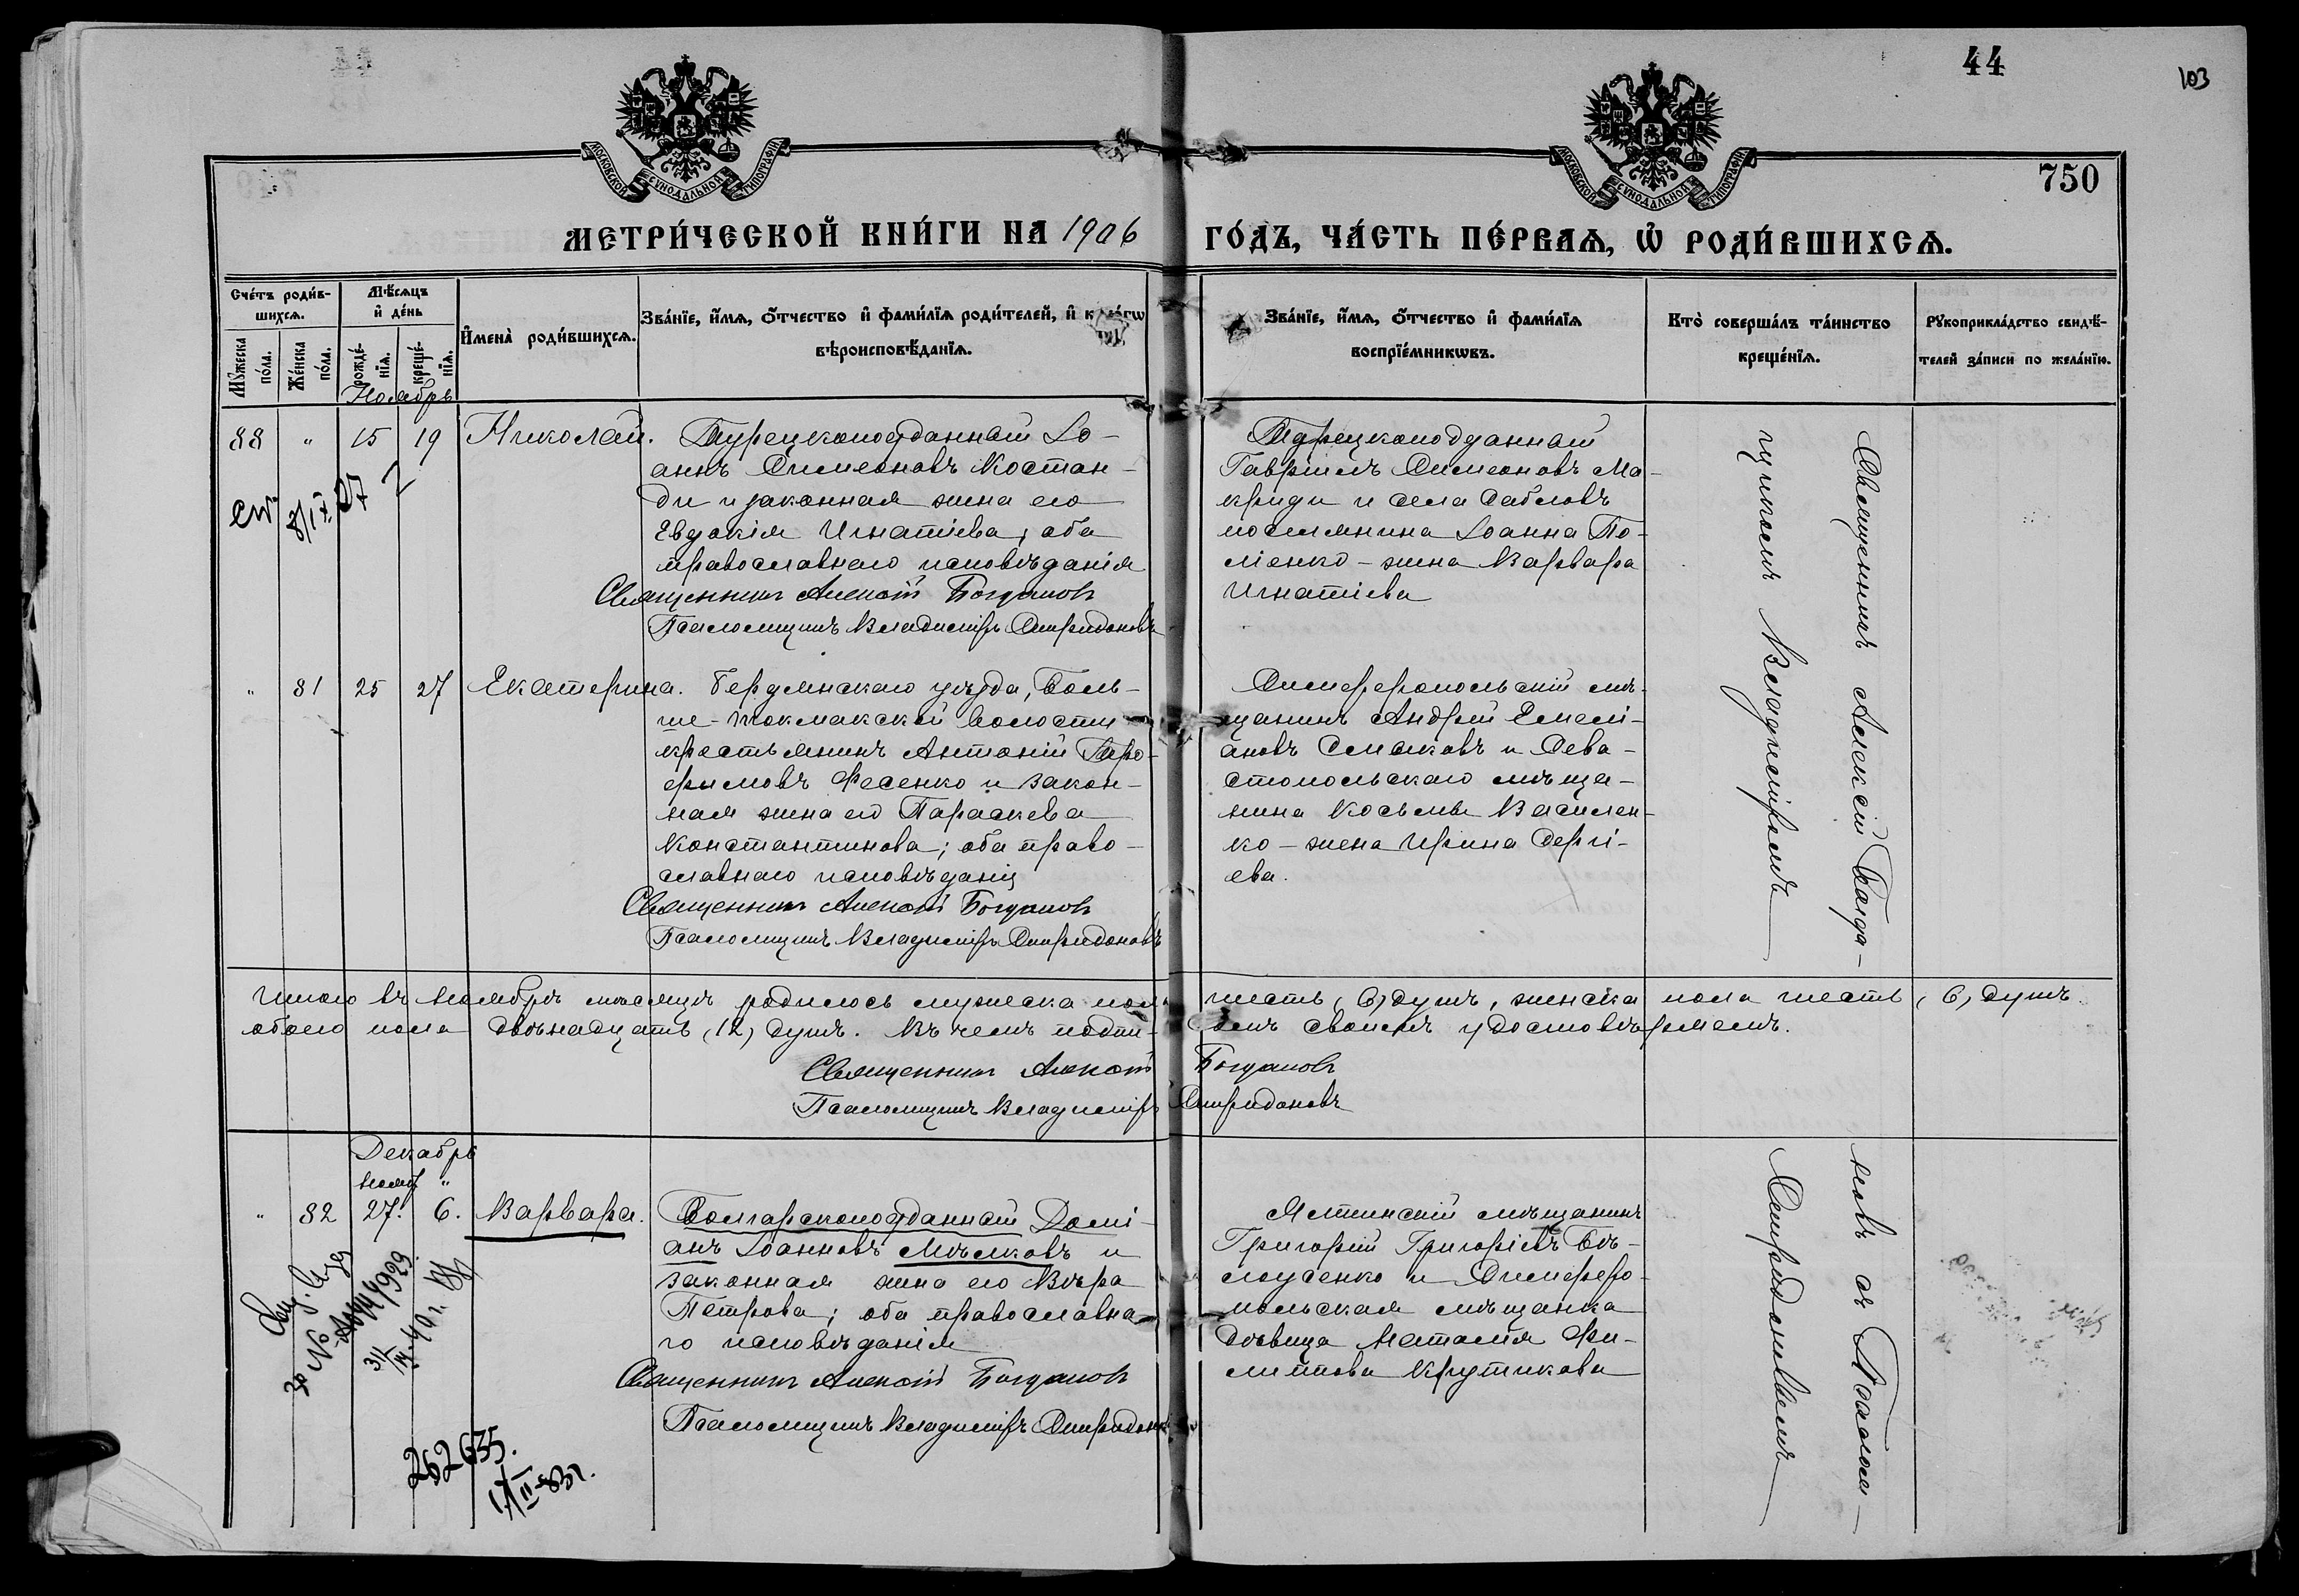 44
103
МОСКОВСКОЙ СѴНОДАЛЬНОЙ ТИПОГРАФІИ
МОСКОВСКОЙ СѴНОДАЛЬНОЙ ТИПОГРАФІИ
750
МЕТРИ́ЧЕСКОЙ КНИ́ГИ НА 1906 ГО́ДЪ, ЧА́СТЬ ПЕ́РВАѦ, Ѡ҆ РОДИ́ВШИХСѦ.
Сче́тъ роди́в-
шихсѧ.
Мꙋ́жеска по́ла.
Же́нска по́ла.
Мѣ́сѧцъ
и҆ де́нь
рожде́-
нїѧ.
креще́-
нїѧ.
И҆мена̀ роди́вшихсѧ.
Зва́нїе, и҆́мѧ, ѻ҆́тчество и҆ фами́лїѧ роди́телей, и҆
вѣроисповѣ́данїѧ.
Зва́нїе, и҆́мѧ, ѻ҆́тчество и҆ фами́лїѧ
воспрїе́мникѡвъ.
Кто̀ соверша́лъ та́инство
креще́нїѧ.
Рꙋкоприкла́дство свидѣ́-
телей за́писи по жела́нїю.
Ноябрь
88 " 15 19 Николай.
Турецкоподданный Іо-
аннъ Симеоновъ Костан-
ди и законная жена его
Евдокія Игнатіева; оба
православнаго исповѣданія
Священникъ Алексій Богдановъ
Псаломщикъ Владиміръ Спиридоновъ
Турецкоподданный
Гавріилъ Симеоновъ Ма-
криди и села Сабловъ
поселянина Іоанна По-
ліенко - жена Варвара
Игнатіева
" 81 25 27 Екатерина.
Бердянскаго уѣзда, Боль-
ше-Токмакской волости
крестьянинъ Антоній Тро-
фимовъ Фесенко и закон-
ная жена его Параскева
Константинова; оба право-
славнаго исповѣданія
Священникъ Алексій Богдановъ
Псаломщикъ Владиміръ Спиридоновъ
Симферопольскій мѣ-
щанинъ Андрей Емелі-
ановъ и Сева-
стопольскаго мѣща-
нина Косьмы Василен-
ко - жена Ирина Сергі-
ева.
Священникъ Алексій Богда-
щикомъ Владиміромъ
Итого въ ноябрѣ мѣсяцѣ родилось мужеска пола шесть (6) душъ, женска пола шесть (6) душъ
обоего пола двѣнадцать (12) душъ. Въ чемъ подпи- сомъ своимъ удостовѣряемъ.
Священникъ Алексій Богдановъ
Псаломщикъ Владиміръ Спиридоновъ
Декабрь
Нояб "
" 82 27. 6. Варвара.
Болгарскоподданный Домі-
анъ Іоанновъ Мѣлковъ и
законная жена его Вѣра
Петрова; оба православна-
го исповѣданія
Священникъ Алексій Богдановъ
Псаломщикъ Владиміръ Спиридоновъ
Ялтинскій мѣщанинъ
Григорій Григорьевъ Бѣ-
лоусенко и Симферо-
польская мѣщанка
дѣвица Наталія Фи-
липпова Крутикова
новъ съ Псалом-
Спиридоновымъ
262635.